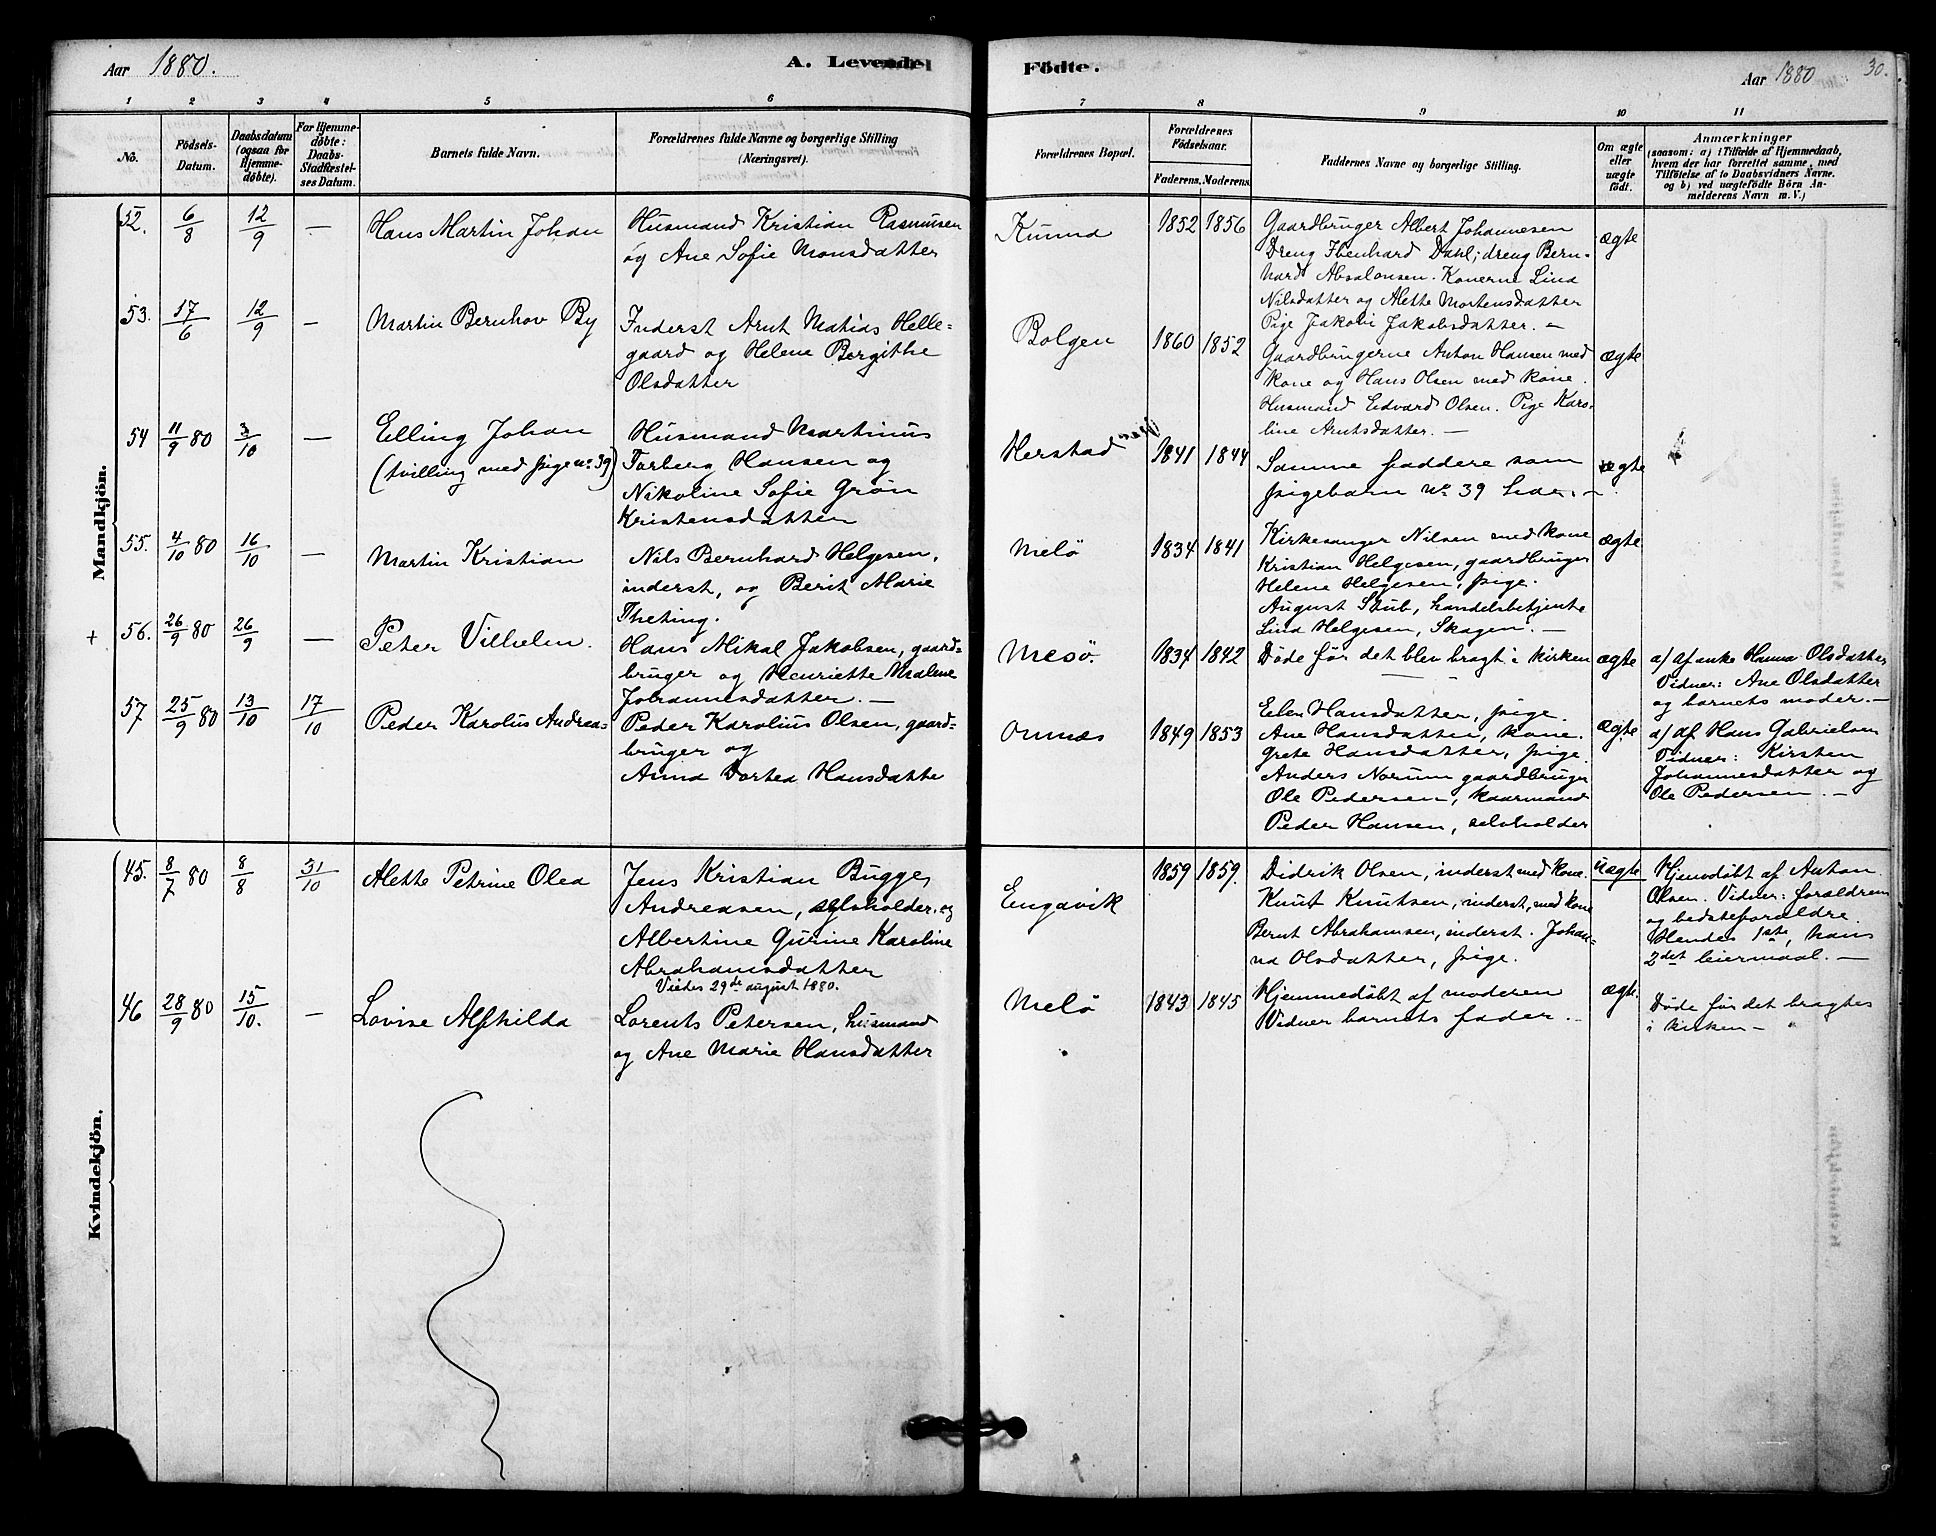 Aar 1880.
A. Levende
Födte.
Aar 1880
30.
1 2 3 4 5 6 7 8 9 10 11
No.
Födsels-Datum.
Daabsdatum (ogsaa for Hjemme-döbte).
For Hjemme-döbte: Daabs-Stadfæstel-ses Datum.
Barnets fulde Navn.
Forældrenes fulde Navne og borgerlige Stilling
(Næringsvei).
Forældrenes Bopæl.
Forældrenes Födselsaar.
Faderens. Moderens.
Faddernes Navne og borgerlige Stilling.
Om ægte eller uægte födt.
Anmærkninger
(saasom: a) i Tilfælde af Hjemmedaab,
hvem der har forrettet samme, med
Tilföielse af to Daabsvidners Navne.
og b) ved uægtefödte Börn An-
melderens Navn m.V.)
Mandkjön.
52. 6/8 12/9 — Hans Martin Johan
Husmand Kristian Rasmusen
og Ane Sofie Monsdatter
Kunna 1852 1856
Gaardbruger Albert Johannesen
Dreng Ibenhard Dahl; dreng Bern-
hard Absalonsen. Konerne Lina
Nilsdatter og Alette Mortensdatter
Pige Jakobi Jakobsdatter. —
ægte
53. 17/6 12/9 — Martin Bernhov By
Inderst Arnt Matias Helle-
gaard og Helene Bergithe
Olsdatter
Bolgen 1860 1852
Gaardbrugerne Anton Hansen med
kone og Hans Olsen med kone.
Husmand Edvard Olsen. Pige Karo-
line Arntsdatter. —
ægte
54 11/9 80 3/10 — Elling Johan
(tvilling med pige no 39)
Husmand Martinus
Torberg Hansen og
Nikoline Sofie Grön
Kristensdatter
Herstad 1841 1844
Samme faddere som
pigebarn no 39 har. —
ægte
55. 4/10 80 16/10 — Martin Kristian
Nils Bernhard Helgesen,
inderst, og Berit Marie
Theting.
Melö 1834 1841
Kirkesanger Nilsen med kone
Kristian Helgesen, gaardbruger
Helene Helgesen, pige.
August Stub, handelsbetjente
Lina Helgesen, Skagen. —
ægte
+ 56. 26/9 80 26/9 — Peter Vilhelm.
Hans Mikal Jakobsen, gaard-
bruger og Henriette Malene
Johannesdatter. —
Mesö. 1834 1842
Döde för det blev bragt i kirken
ægte
a) af enke Hanna Olsdatter
Vidner: Ane Olsdatter
og barnets moder. —
57 25/9 80 13/10 17/10 Peder Karolus Andreas
Peder Karolius Olsen, gaard-
bruger og
Anna Dortea Hansdatte
Omnæs 1849 1853
Elen Hansdatter, pige.
Ane Hansdatter, kone.
Grete Hansdatter, pige.
Anders Norum gaardbruger
Ole Pedersen, kaarmand
Peder Hansen, selvholder
ægte
a) af Hans Gabrielsen
Vidner: Kirsten
Johannesdatter og
Ole Pedersen. —
Kvindekjön.
45. 8/7 80 8/8 31/10 Alette Petrine Olea
Jens Kristian Bugge
Andreasen, selvholder, og
Albertine Gurine Karoline
Abrahamsdatter
Viedes 29de august 1880.
Engavik 1859 1859.
Didrik Olsen, inderst med kone.
Knut Knutsen, inderst, med kone
Bernt Abrahamsen, inderst. Johan-
na Olsdatter, pige.
Uægte
Hjemdöbt af Anton
Olsen. Vidner: foraldrene
og bedsteforaldre.
Hendes 1ste, hans
2det leiermaal. —
46 28/9 80 15/10. — Lovise Alfhilda
Lorents Petersen, husmand
og Ane Marie Hansdatter
Melö 1843 1845
Hjemmedöbt af moderen
Vidner barnets fader. —
ægte.
Döde för det bragtes
i kirken —